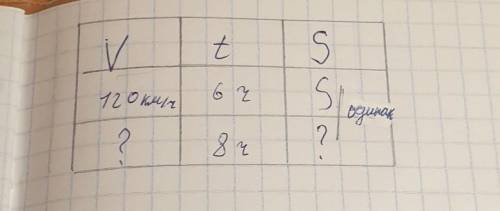 V t S
120 км/ч 6 ч S одинак
? 8 ч ?